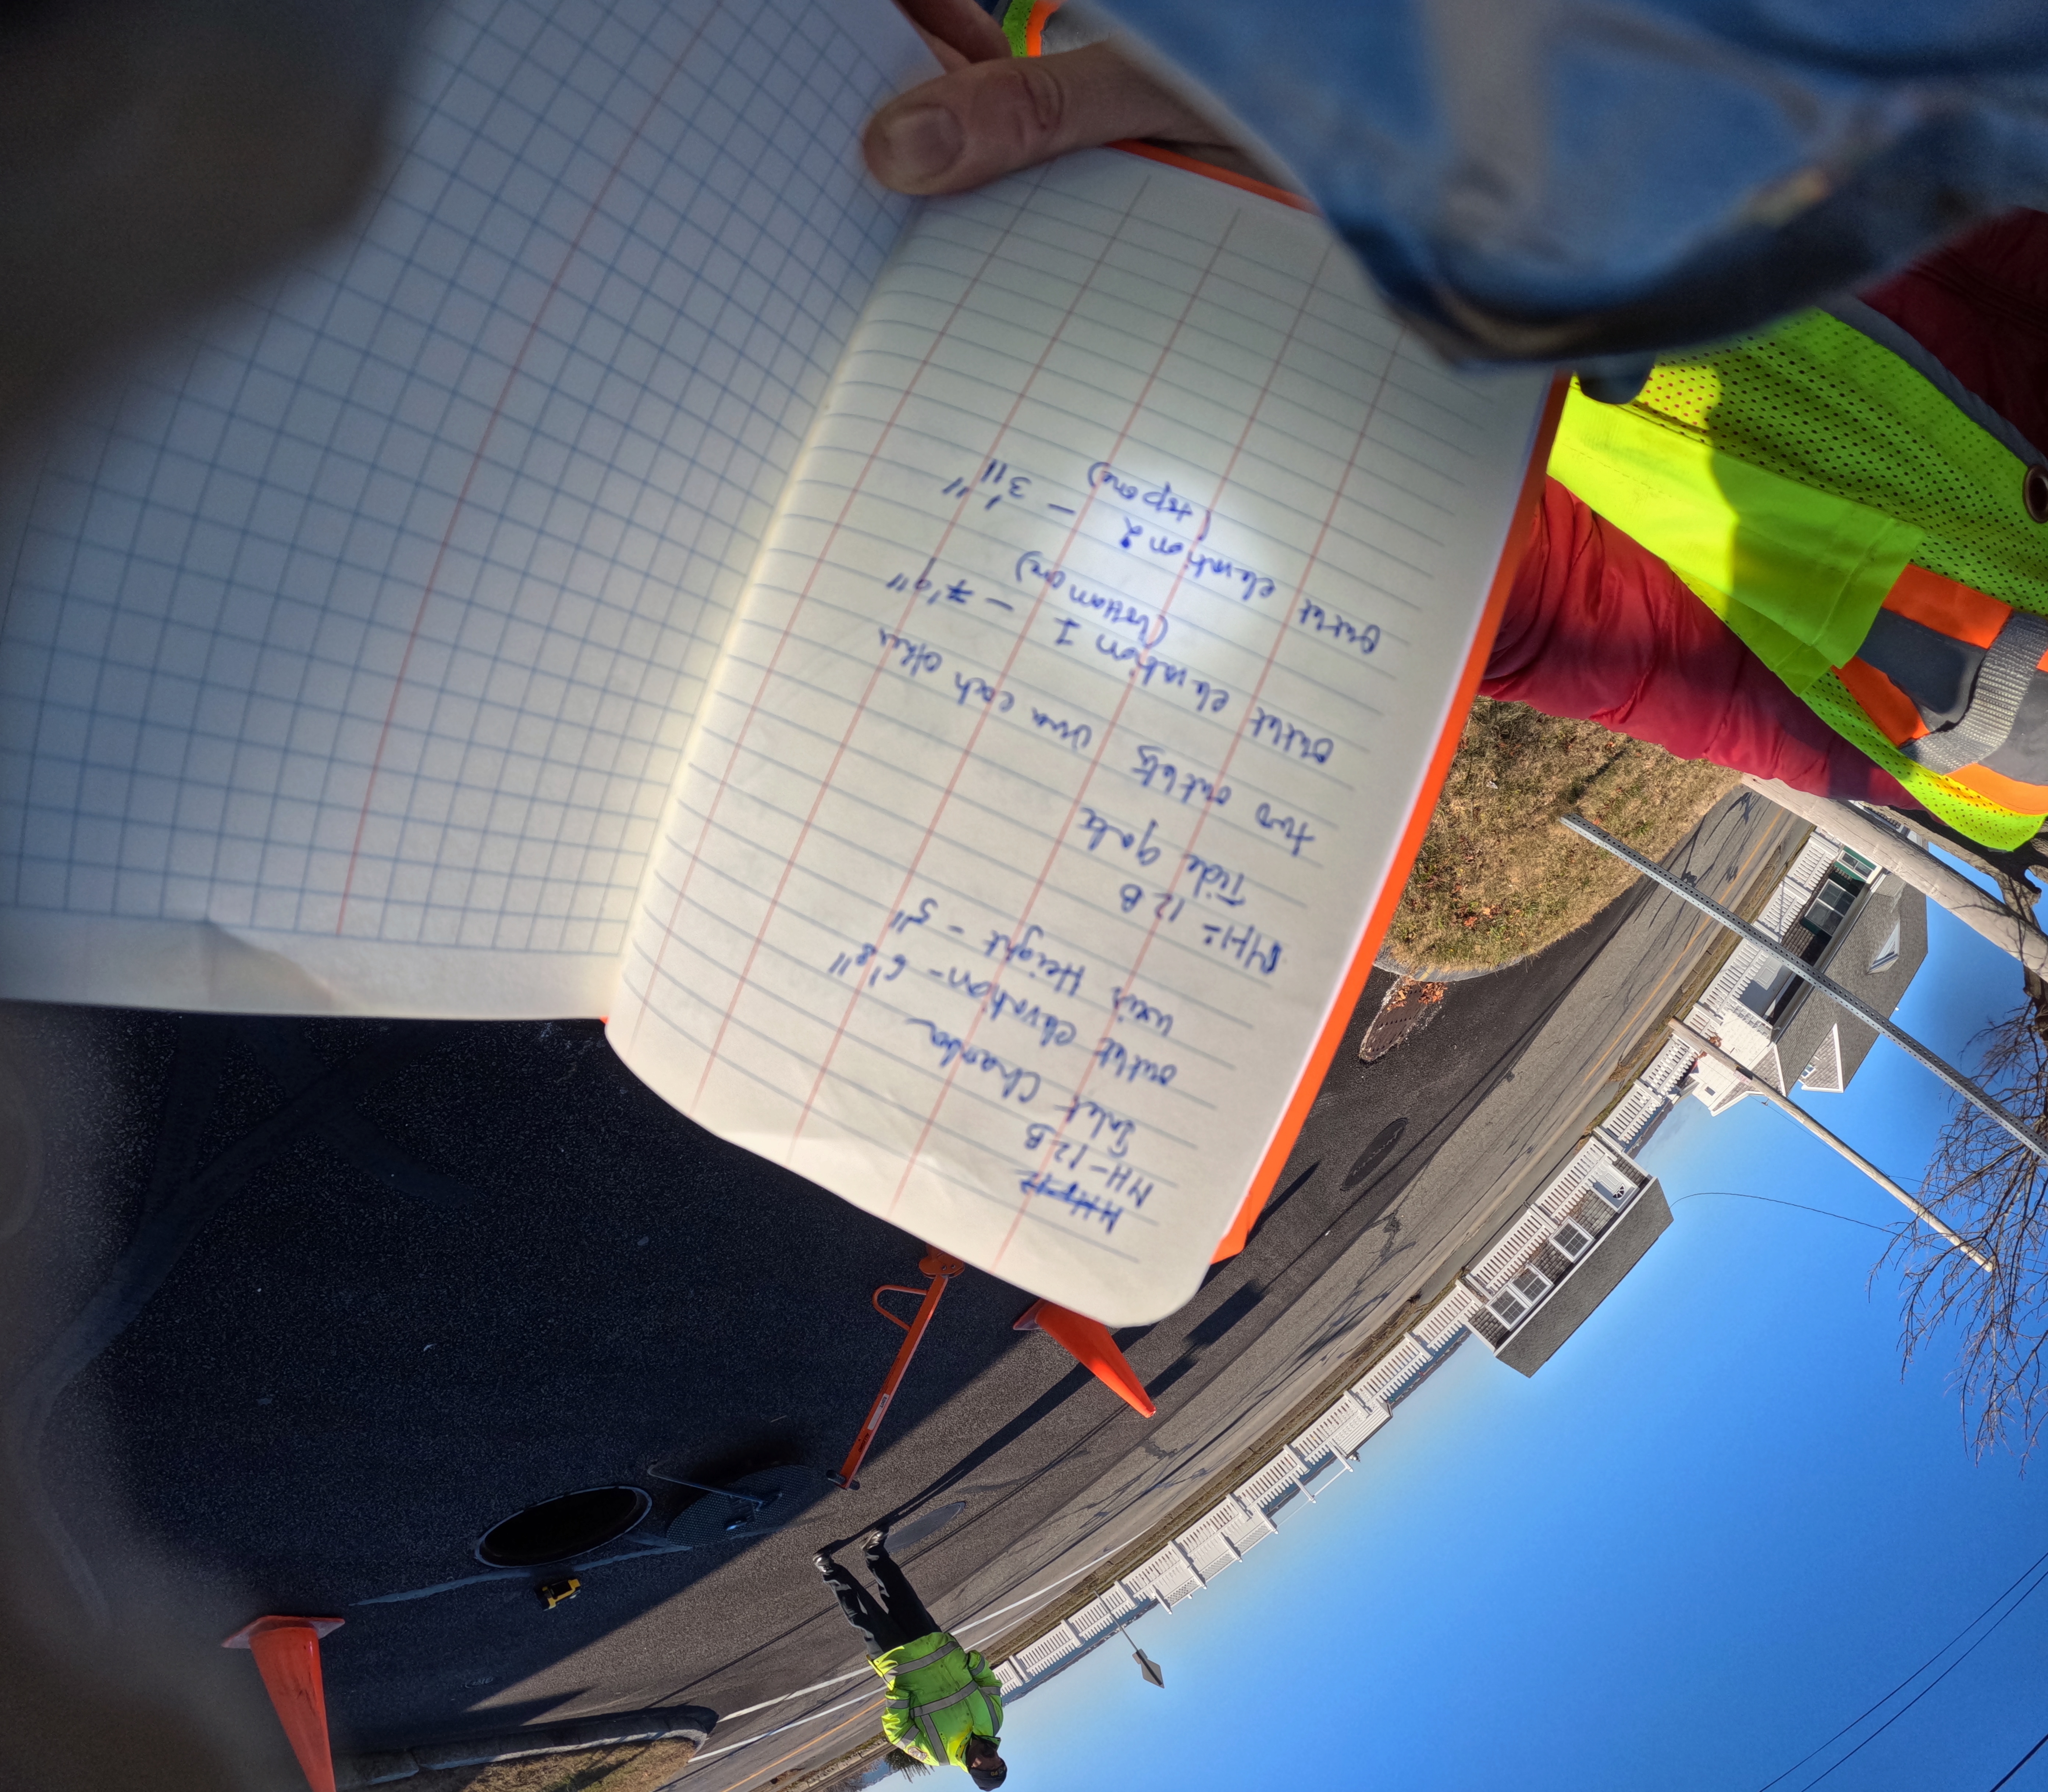 MH-12
MH-12B
Inlet Chamber
outlet elevation - 6'8"
weir Height - 5"
MH-12B
Tide gate
two outlets over each other
outlet elevation 1 - 7'9"
(bottom one)
outlet elevation 2 - 3'11"
(top one)